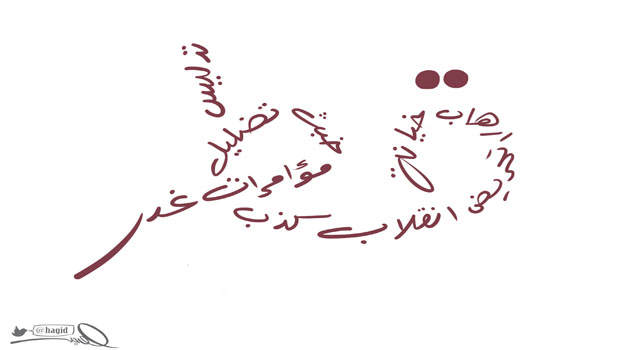 خيانة
إرهاب
تحريض
انقلاب
كذب
خبث
تضليل
تدليس
مؤامرات
غدر
@hagid